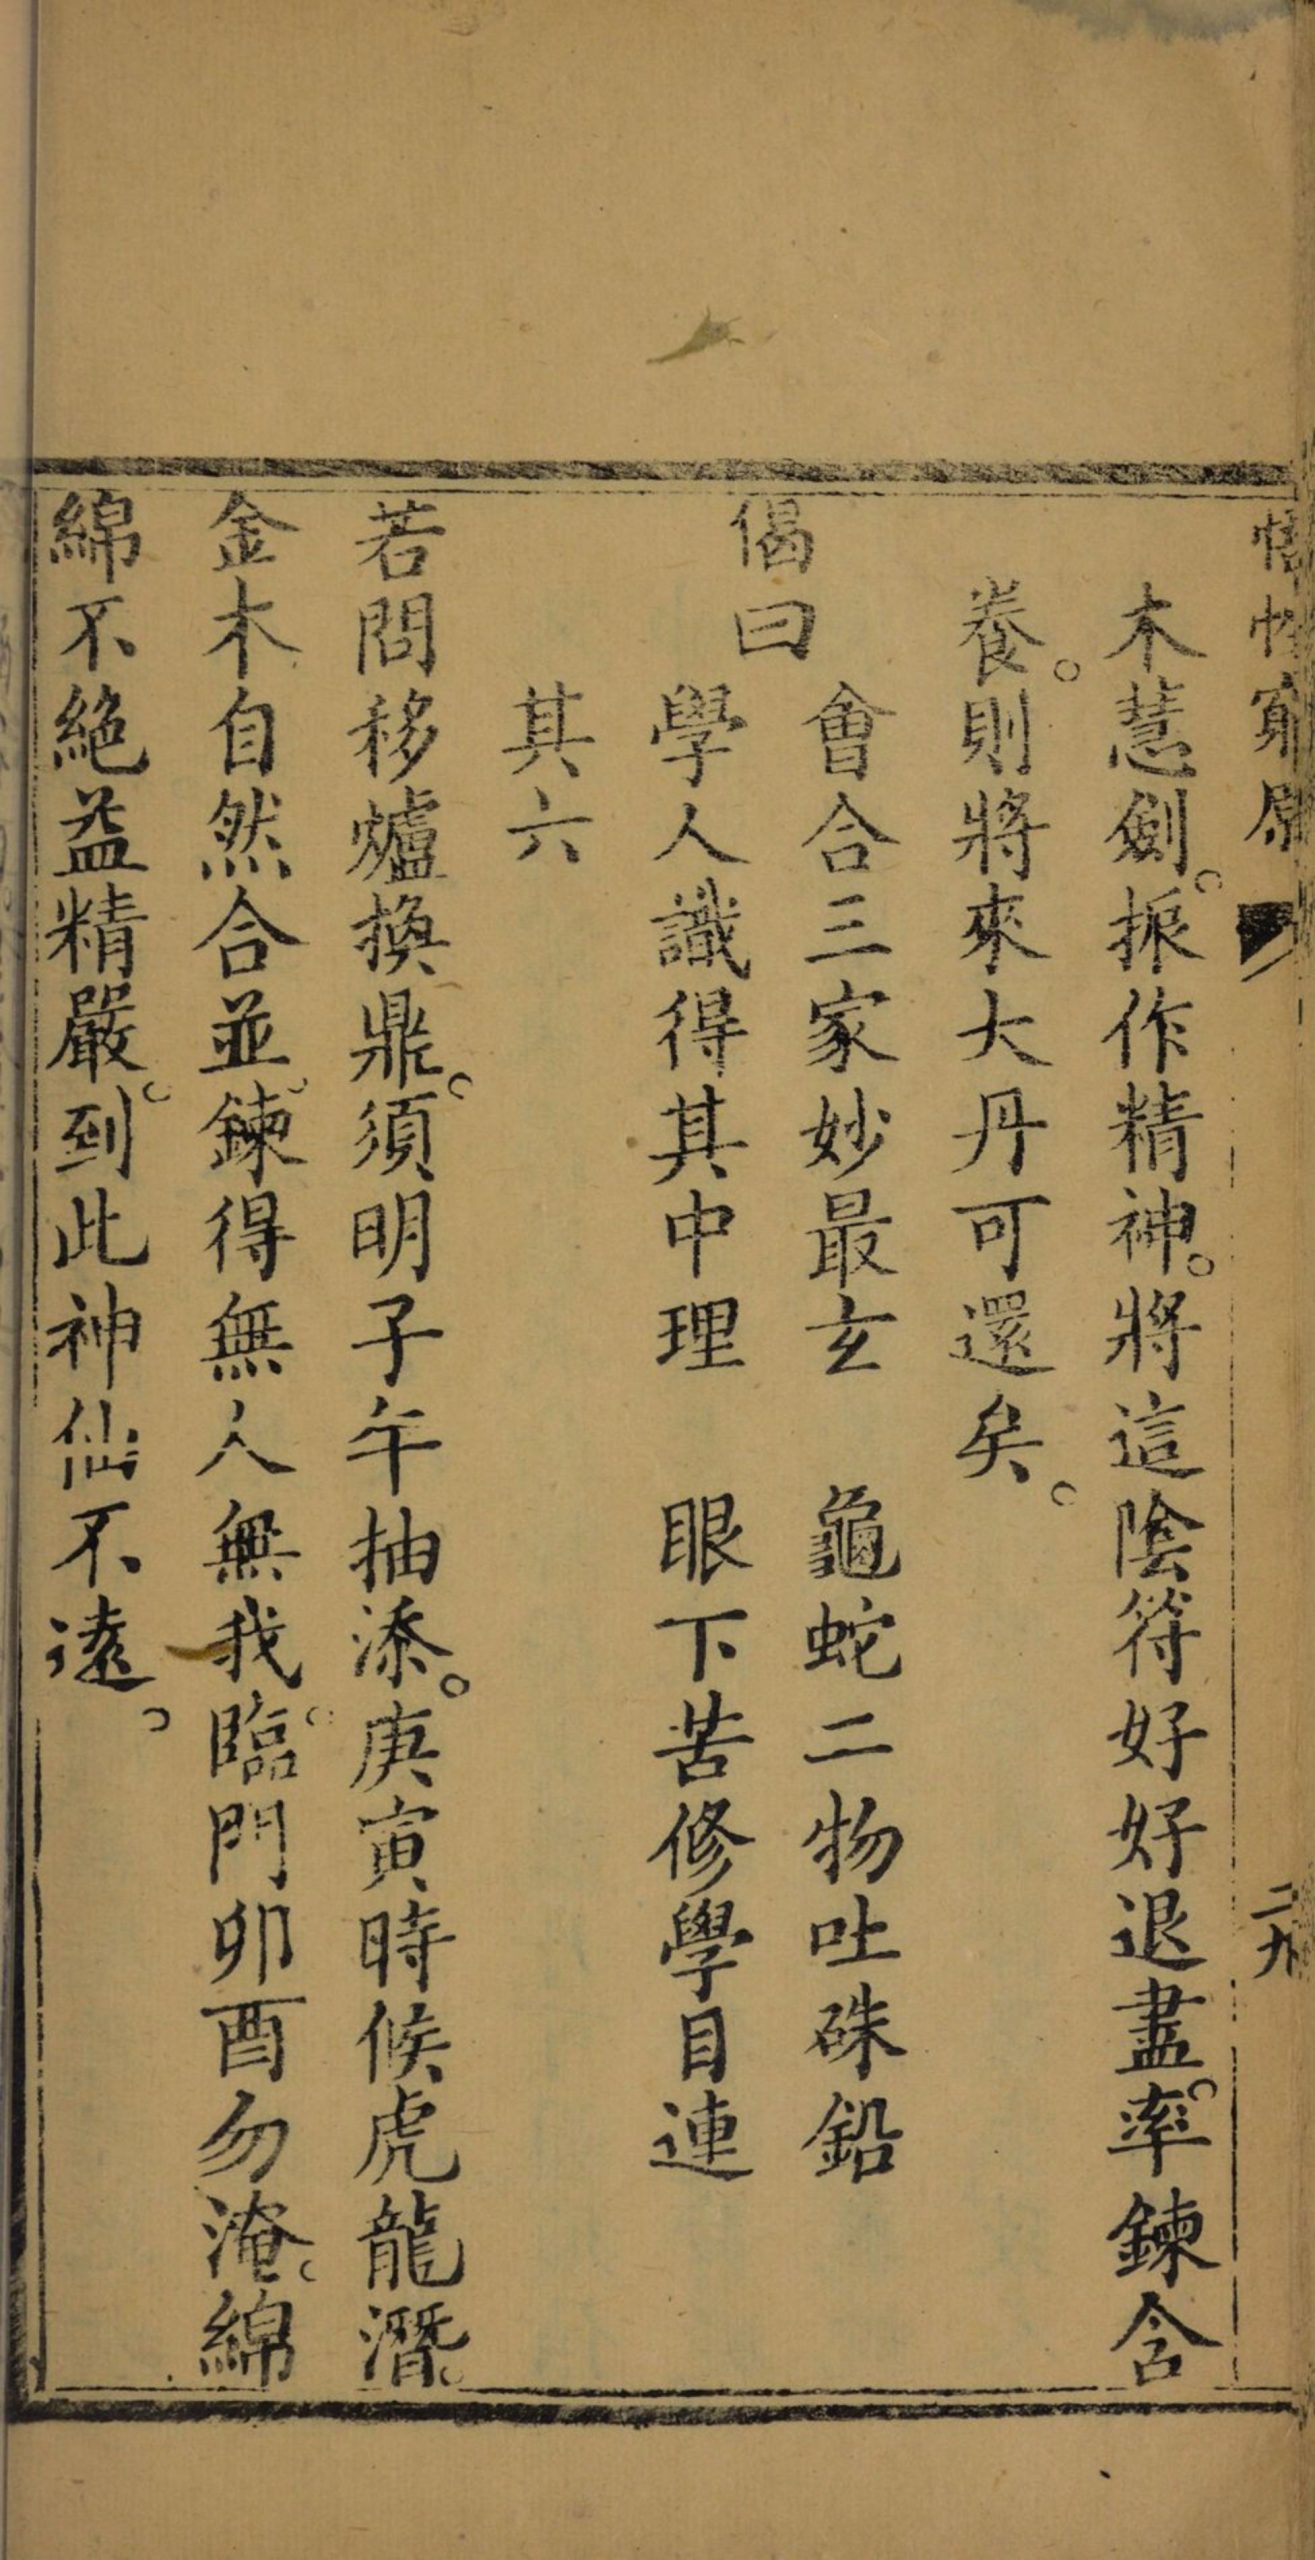 悟性窮原
二九
木慧劍。振作精神。將這陰符好好退盡。率鍊含
養。則將來大丹可還矣。
偈曰
會合三家妙最玄　龜蛇二物吐硃鉛
學人識得其中理　眼下苦修學目連
其六
若問移爐換鼎。須明子午抽添。庚寅時候虎龍潛。
金木自然合並。鍊得無人無我。臨門卯酉勿淹。綿
綿不絕益精嚴。到此神仙不遠。